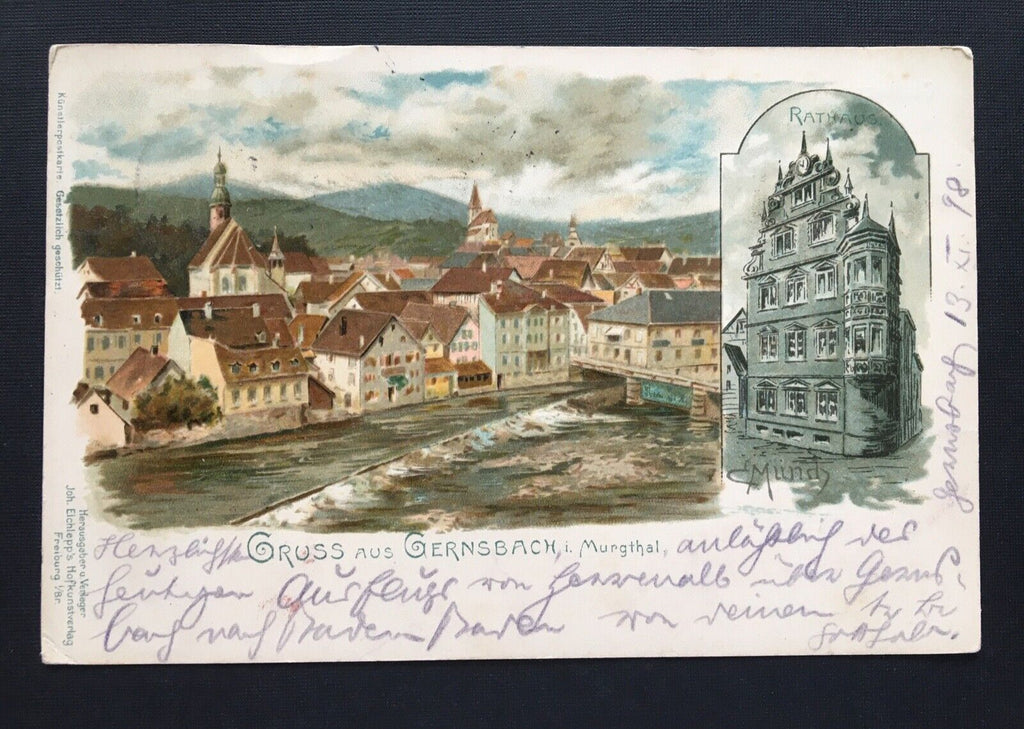 Künstlerpostkarte. Gesetzlich geschützt.
RATHAUS
C. Münch
Gernsbach 13. XI. 98.
Herausgeber u. Verleger
Joh. Elchlepp's Hofkunstverlag
Freiburg i/Br.
Herzlichste GRUSS AUS GERNSBACH, i. Murgthal, anläßlich des
heutigen Ausflugs von Herrenalb über Gerns-
bach nach Baden Baden von deinem